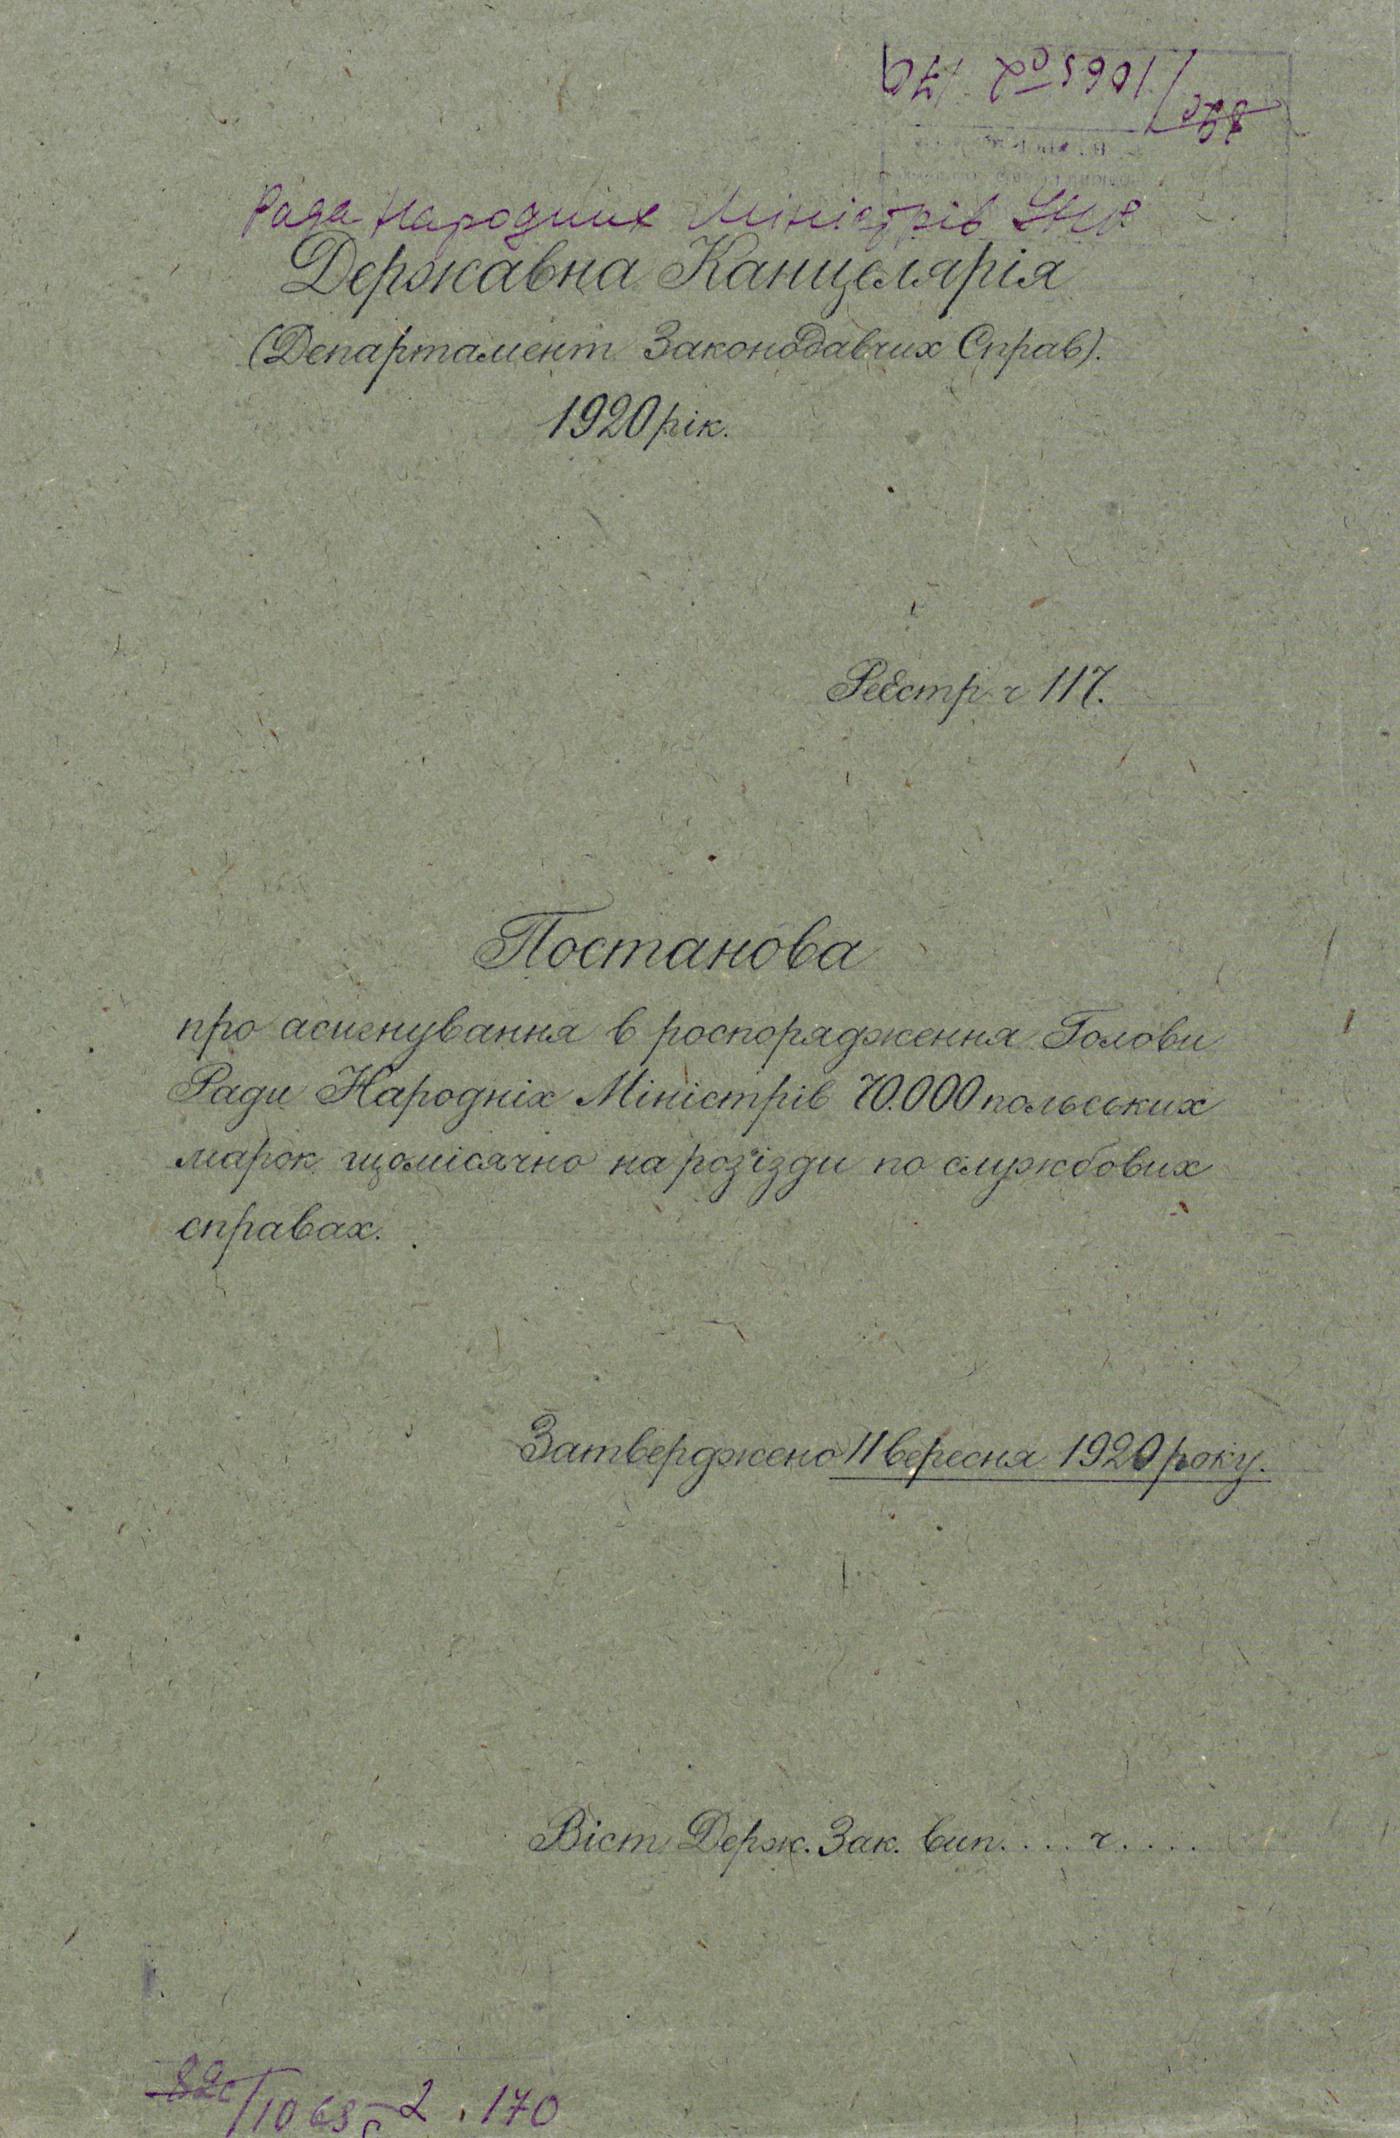 Рада Народних Міністрів УНР
Державна Канцелярія
(Департамент Законодавчих Справ).
1920 рік.
Реєстр. ч 117.
Постанова
про асигнування в роспорядження Голови
Ради Народніх Міністрів 70.000 польських
марок щомісячно на роз'їзди по службових
справах.
Затверджено 11 вересня 1920 року.
Віст. Держ. Зак. вип. . . . ч. . . . .
/1065 2 . 170